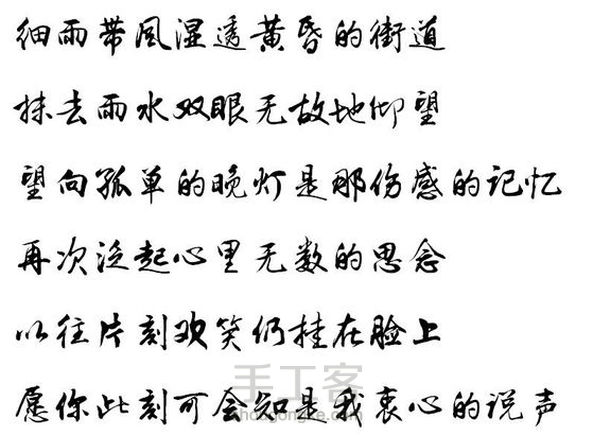 细雨带风湿透黄昏的街道
抹去雨水双眼无故地仰望
望向孤单的晚灯是那伤感的记忆
再次泛起心里无数的思念
以往片刻欢笑仍挂在脸上
愿你此刻可会知是我衷心的说声
手工客